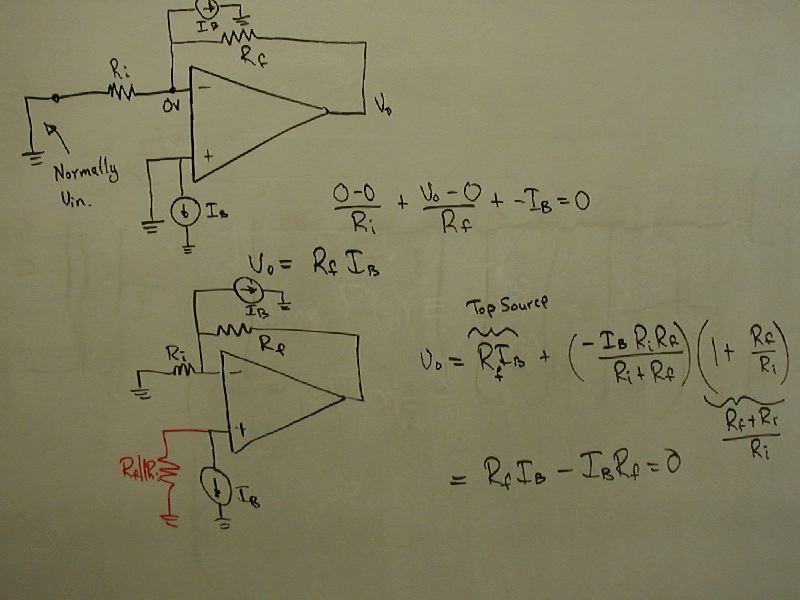 I_B
R_f
R_i
0V
−
V_o
+
Normally
Vin.
I_B
(0-0)/R_i + (V_o-0)/R_f + -I_B = 0
V_o = R_f I_B
I_B
R_f
R_i
−
+
R_f||R_i
I_B
Top Source
V_o = R_f I_B + (-I_B R_i R_f / R_i + R_f)(1 + R_f/R_i)
(R_f + R_i)/R_i
= R_f I_B - I_B R_f = 0